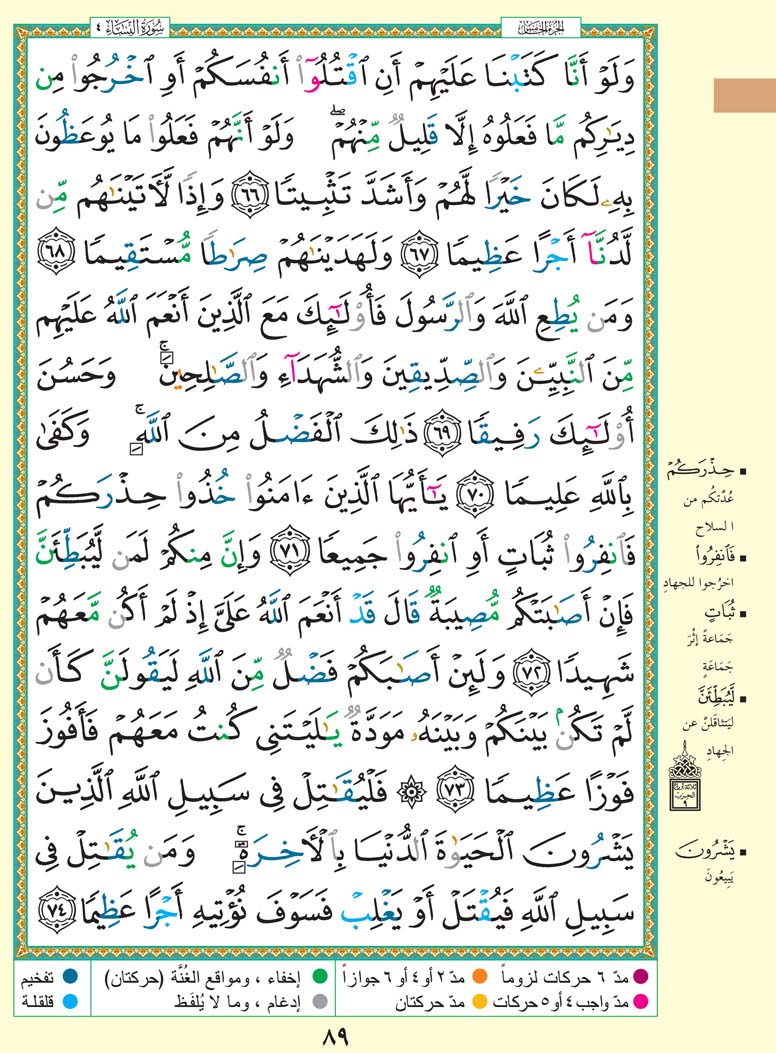 سُورَةُ النِّسَاءِ ٤
الجُزءُ الخَامِسُ
وَلَوۡ أَنَّا كَتَبۡنَا عَلَيۡهِمۡ أَنِ ٱقۡتُلُوٓاْ أَنفُسَكُمۡ أَوِ ٱخۡرُجُواْ مِن
دِيَٰرِكُم مَّا فَعَلُوهُ إِلَّا قَلِيلٞ مِّنۡهُمۡۖ وَلَوۡ أَنَّهُمۡ فَعَلُواْ مَا يُوعَظُونَ
بِهِۦ لَكَانَ خَيۡرٗا لَّهُمۡ وَأَشَدَّ تَثۡبِيتٗا ٦٦ وَإِذٗا لَّأٓتَيۡنَٰهُم مِّن
لَّدُنَّآ أَجۡرًا عَظِيمٗا ٦٧ وَلَهَدَيۡنَٰهُمۡ صِرَٰطٗا مُّسۡتَقِيمٗا ٦٨
وَمَن يُطِعِ ٱللَّهَ وَٱلرَّسُولَ فَأُوْلَٰٓئِكَ مَعَ ٱلَّذِينَ أَنۡعَمَ ٱللَّهُ عَلَيۡهِم
مِّنَ ٱلنَّبِيِّـۧنَ وَٱلصِّدِّيقِينَ وَٱلشُّهَدَآءِ وَٱلصَّٰلِحِينَۚ وَحَسُنَ
أُوْلَٰٓئِكَ رَفِيقٗا ٦٩ ذَٰلِكَ ٱلۡفَضۡلُ مِنَ ٱللَّهِۚ وَكَفَىٰ
بِٱللَّهِ عَلِيمٗا ٧٠ يَٰٓأَيُّهَا ٱلَّذِينَ ءَامَنُواْ خُذُواْ حِذۡرَكُمۡ
فَٱنفِرُواْ ثُبَاتٍ أَوِ ٱنفِرُواْ جَمِيعٗا ٧١ وَإِنَّ مِنكُمۡ لَمَن لَّيُبَطِّئَنَّ
فَإِنۡ أَصَٰبَتۡكُم مُّصِيبَةٞ قَالَ قَدۡ أَنۡعَمَ ٱللَّهُ عَلَيَّ إِذۡ لَمۡ أَكُن مَّعَهُمۡ
شَهِيدٗا ٧٢ وَلَئِنۡ أَصَٰبَكُمۡ فَضۡلٞ مِّنَ ٱللَّهِ لَيَقُولَنَّ كَأَن
لَّمۡ تَكُنۢ بَيۡنَكُمۡ وَبَيۡنَهُۥ مَوَدَّةٞ يَٰلَيۡتَنِي كُنتُ مَعَهُمۡ فَأَفُوزَ
فَوۡزًا عَظِيمٗا ٧٣ ۞ فَلۡيُقَٰتِلۡ فِي سَبِيلِ ٱللَّهِ ٱلَّذِينَ
يَشۡرُونَ ٱلۡحَيَوٰةَ ٱلدُّنۡيَا بِٱلۡأٓخِرَةِۚ وَمَن يُقَٰتِلۡ فِي
سَبِيلِ ٱللَّهِ فَيُقۡتَلۡ أَوۡ يَغۡلِبۡ فَسَوۡفَ نُؤۡتِيهِ أَجۡرًا عَظِيمٗا ٧٤
▪ حِذۡرَكُمۡ
عُدَّتكُم من
السلاح
▪ فَٱنفِرُواْ
اخرُجوا للجهادِ
▪ ثُبَاتٍ
جَمَاعةً إِثْرَ
جَمَاعَةٍ
▪ لَّيُبَطِّئَنَّ
ليَتثاقَلنَّ عن
الجِهادِ
ثلاثة أرباع
الحزب
٩
▪ يَشۡرُونَ
يَبِيعُونَ
مدّ ٦ حركات لزوماً مدّ ٢ أو ٤ أو ٦ جوازاً إخفاء ، ومواقع الغُنَّة (حركتان) تفخيم
مدّ واجب ٤ أو ٥ حركات مدّ حركتان إدغام ، وما لا يُلفَظ قلقلة
٨٩